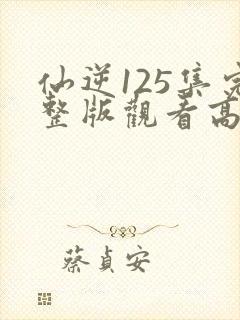 仙逆125集完
整版觀看高
蔡貞安